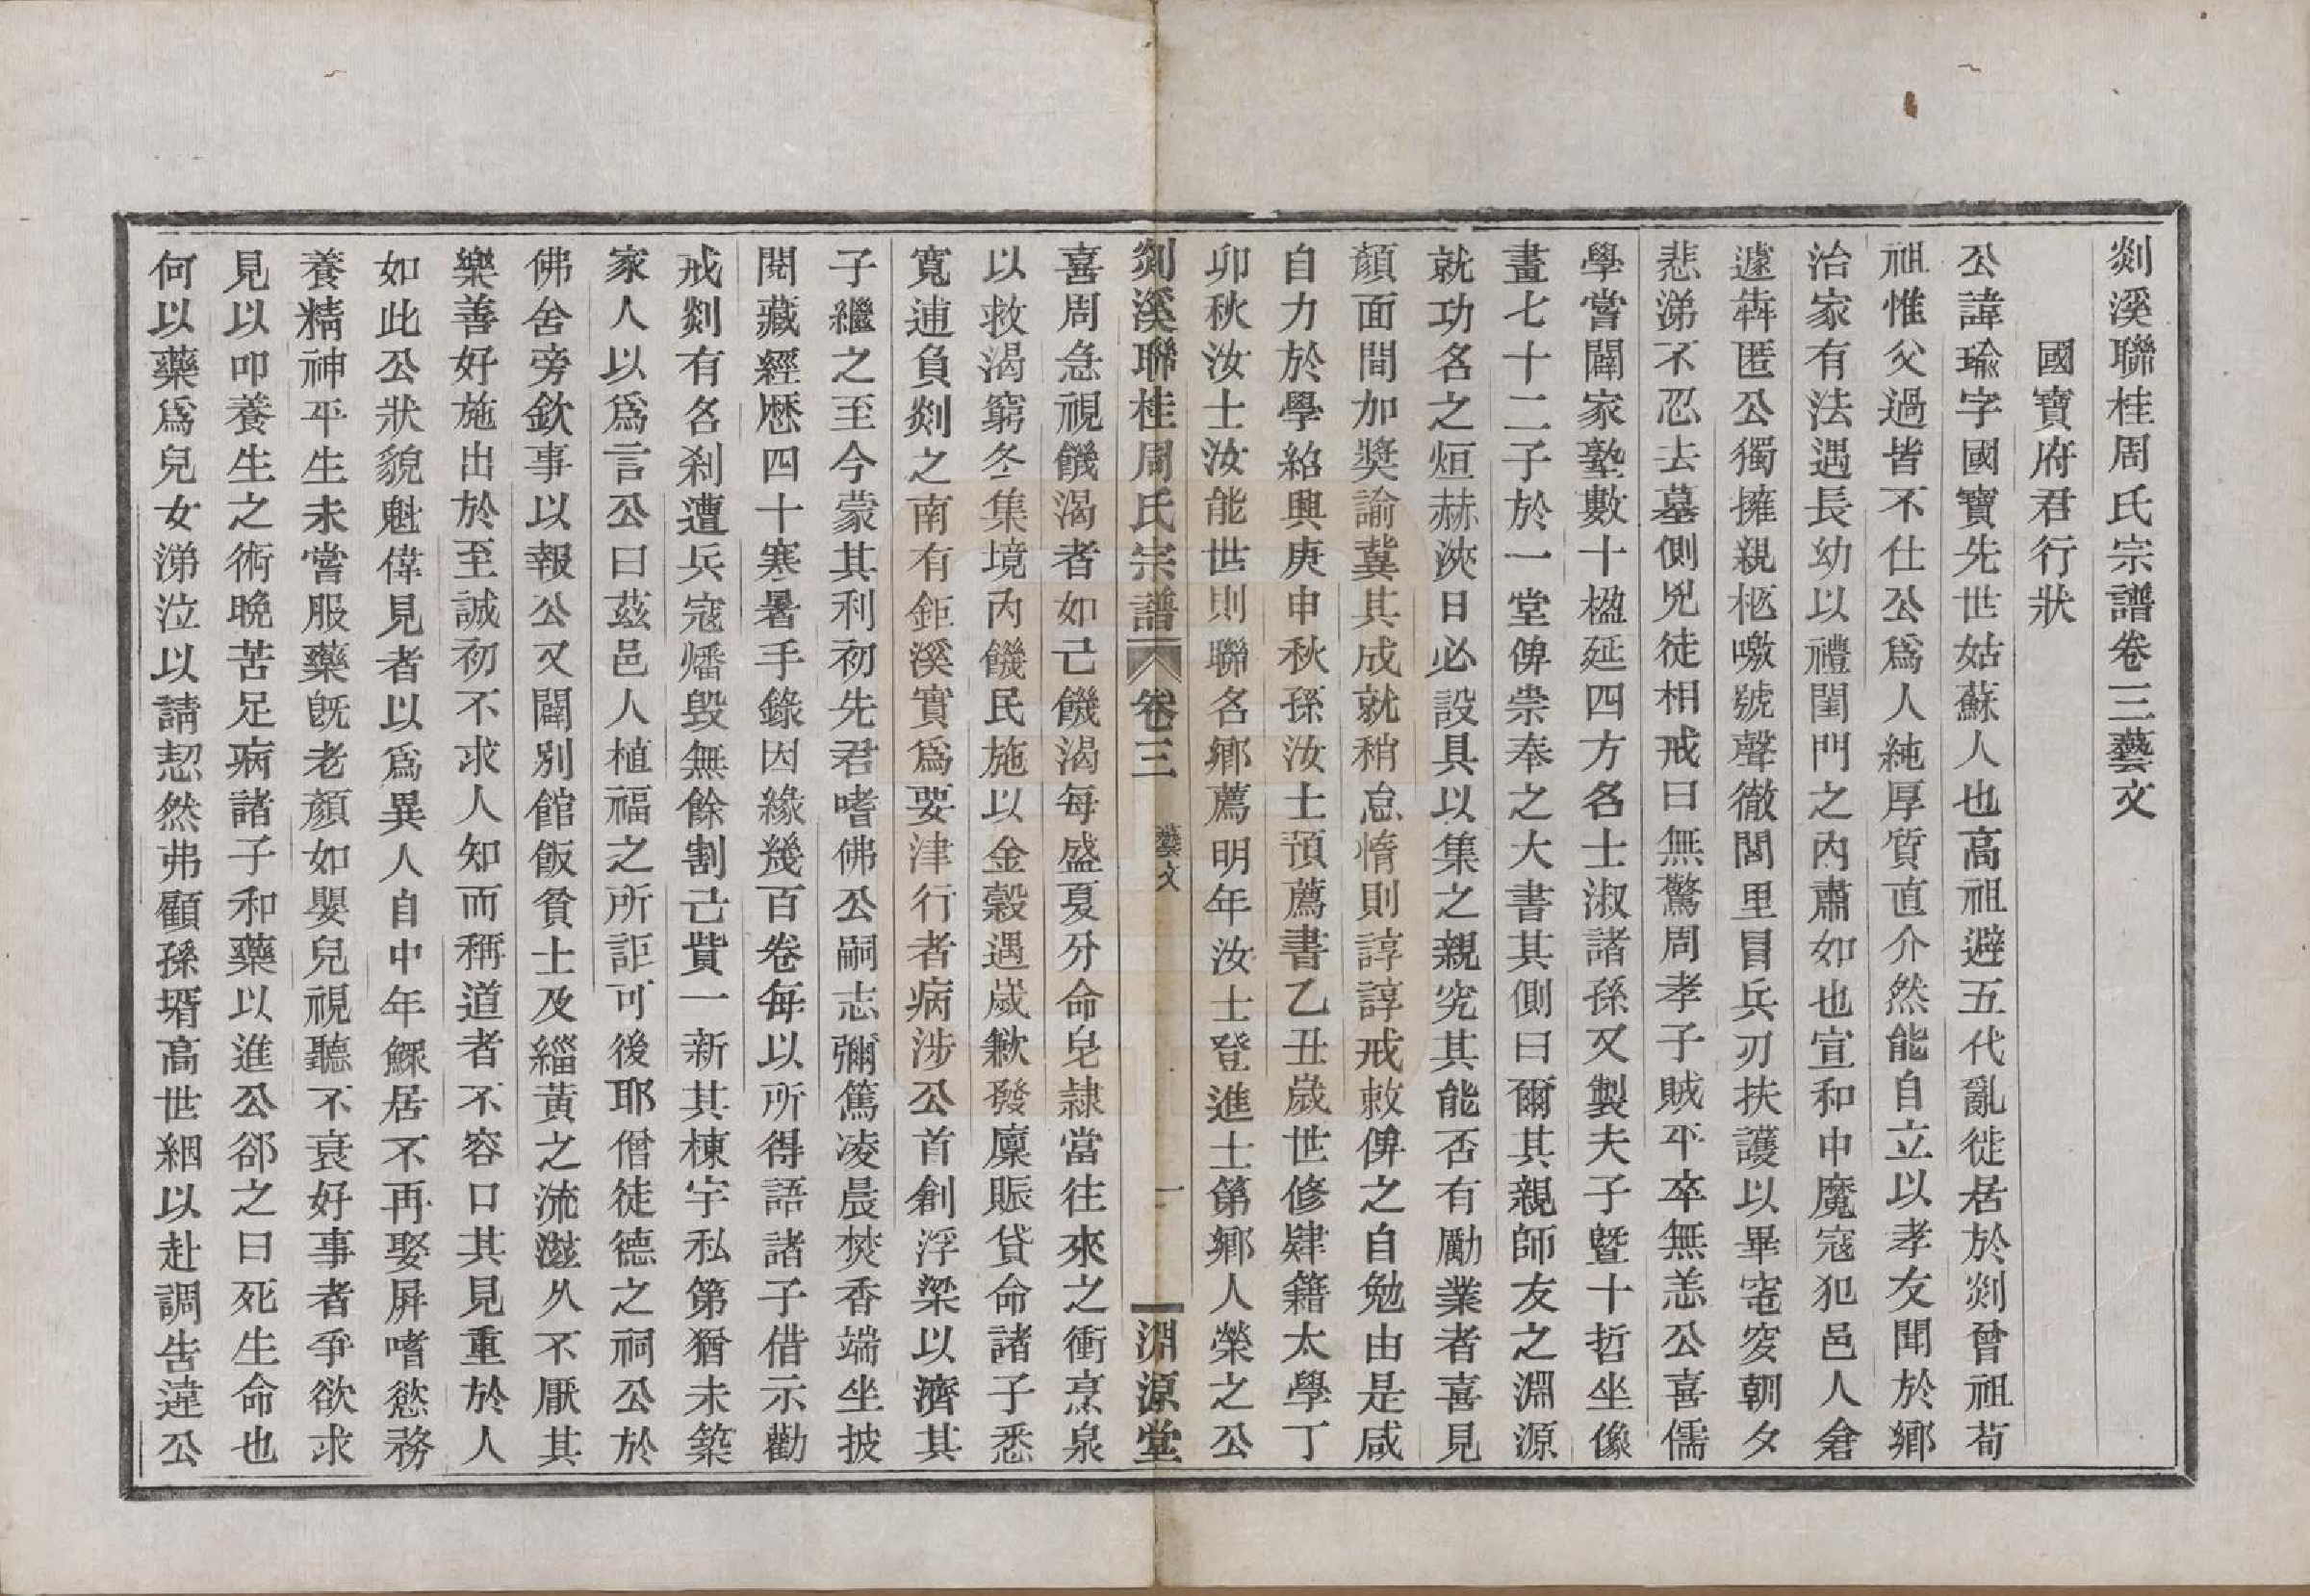 剡溪聯桂周氏宗譜卷三藝文
國寶府君行狀
公諱瑜字國寶先世姑蘇人也高祖避五代亂徙居於剡曾祖荀
祖惟父過皆不仕公爲人純厚質直介然能自立以孝友聞於鄉
治家有法遇長幼以禮閨門之內肅如也宣和中魔寇犯邑人倉
遽犇匿公獨擁親柩噭號聲徹閭里冒兵刃扶護以畢窀穸朝夕
悲涕不忍去墓側兇徒相戒曰無驚周孝子賊平卒無恙公喜儒
學嘗闢家塾數十楹延四方名士淑諸孫又製夫子暨十哲坐像
畫七十二子於一堂俾崇奉之大書其側曰爾其親師友之淵源
就功名之烜赫浹日必設具以集之親究其能否有勵業者喜見
顏面間加獎諭冀其成就稍怠惰則諄諄戒敕俾之自勉由是咸
自力於學紹興庚申秋孫汝士預薦書乙丑歲世修肄籍太學丁
卯秋汝士汝能世則聯名鄉薦明年汝士登進士第鄉人榮之公
剡溪聯桂周氏宗譜 卷三 藝文 一 淵源堂
喜周急視饑渴者如己饑渴每盛夏分命皂隷當往來之衝烹泉
以救渴窮冬集境內饑民施以金穀遇歲歉發廩賑貸命諸子悉
寬逋負剡之南有鉅溪實爲要津行者病涉公首創浮梁以濟其
子繼之至今蒙其利初先君嗜佛公嗣志彌篤凌晨焚香端坐披
閱藏經歷四十寒暑手錄因緣幾百卷每以所得語諸子借示勸
戒剡有名刹遭兵寇燔毀無餘割己貲一新其棟宇私第猶未築
家人以爲言公曰茲邑人植福之所詎可後耶僧徒德之祠公於
佛舍旁欽事以報公又闢別館飯貧士及緇黃之流滋久不厭其
樂善好施出於至誠初不求人知而稱道者不容口其見重於人
如此公狀貌魁偉見者以爲異人自中年鰥居不再娶屏嗜慾務
養精神平生未嘗服藥旣老顏如嬰兒視聽不衰好事者爭欲求
見以叩養生之術晚苦足病諸子和藥以進公郤之曰死生命也
何以藥爲兒女涕泣以請恝然弗顧孫壻高世綑以赴調告違公